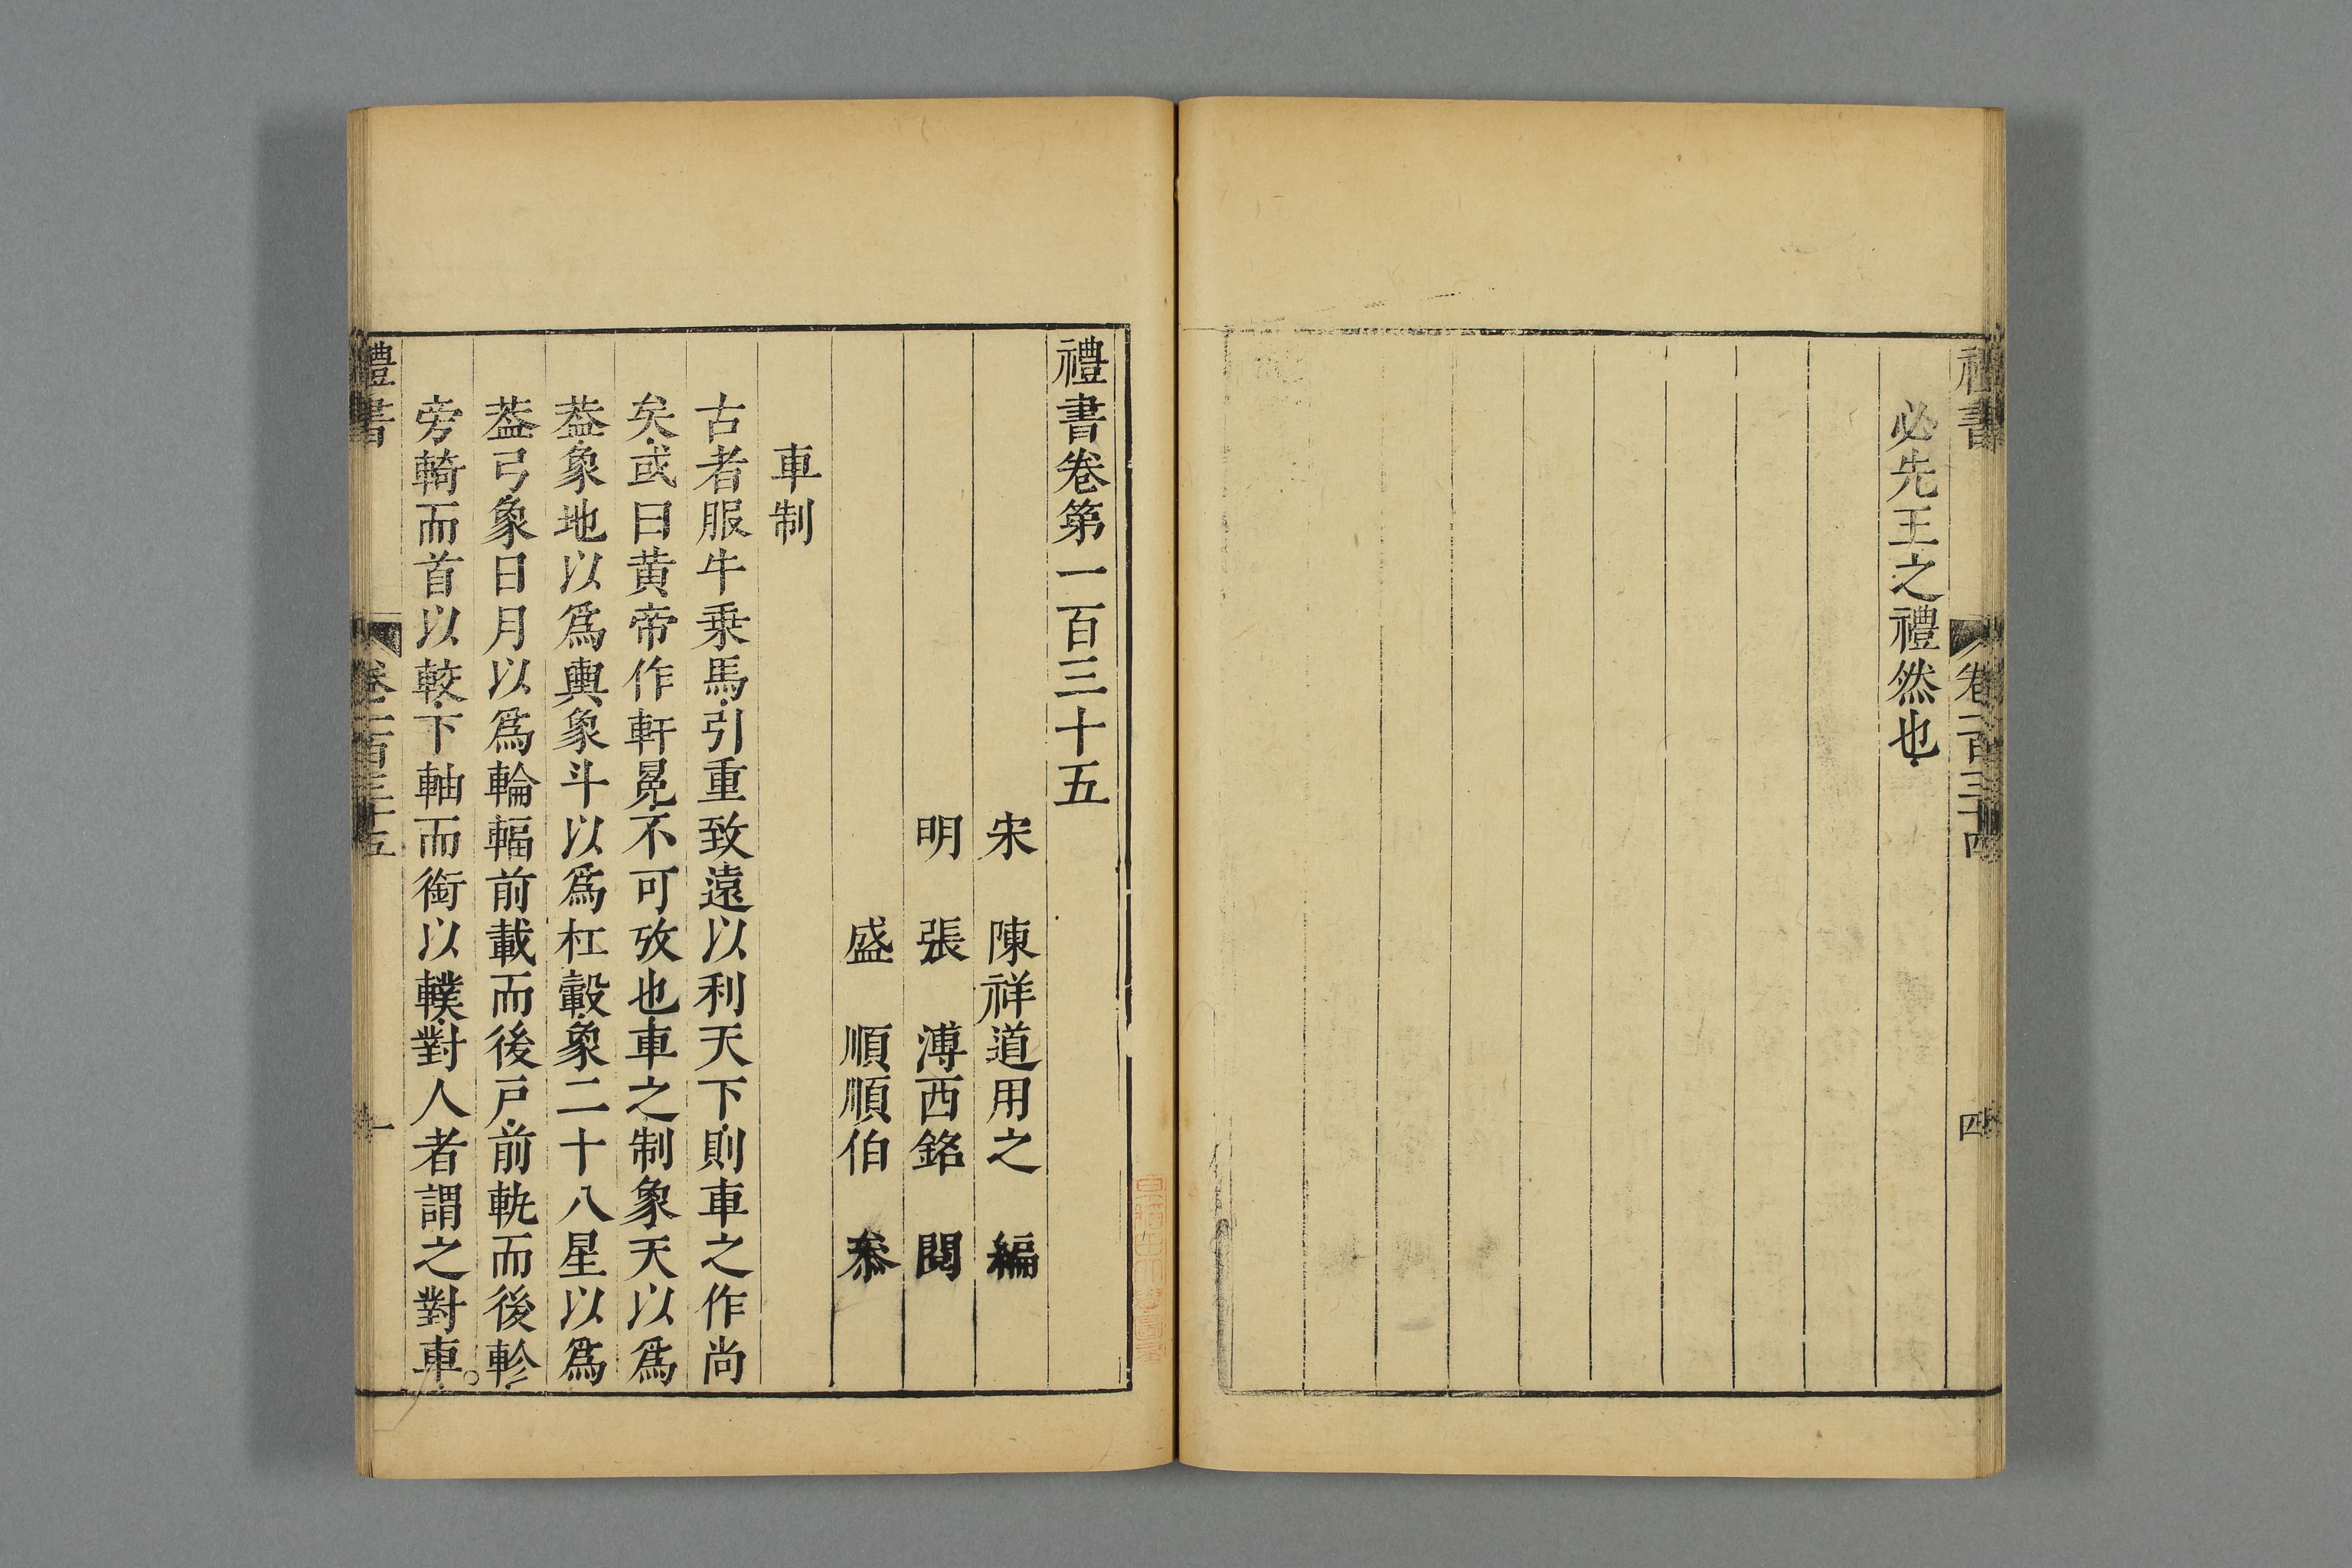 禮書 卷一百三十四 四
必先王之禮然也
禮書卷第一百三十五
宋 陳祥道用之 編
明 張 溥西銘 閱
盛 順順伯 叅
車制
古者服牛乘馬引重致遠以利天下則車之作尚
矣或曰黃帝作軒冕不可攷也車之制象天以爲
葢象地以爲輿象斗以爲杠轂象二十八星以爲
葢弓象日月以爲輪輻前載而後戸前軓而後軫
旁輢而首以較下軸而銜以轐對人者謂之對車
禮書 卷一百三十五 一